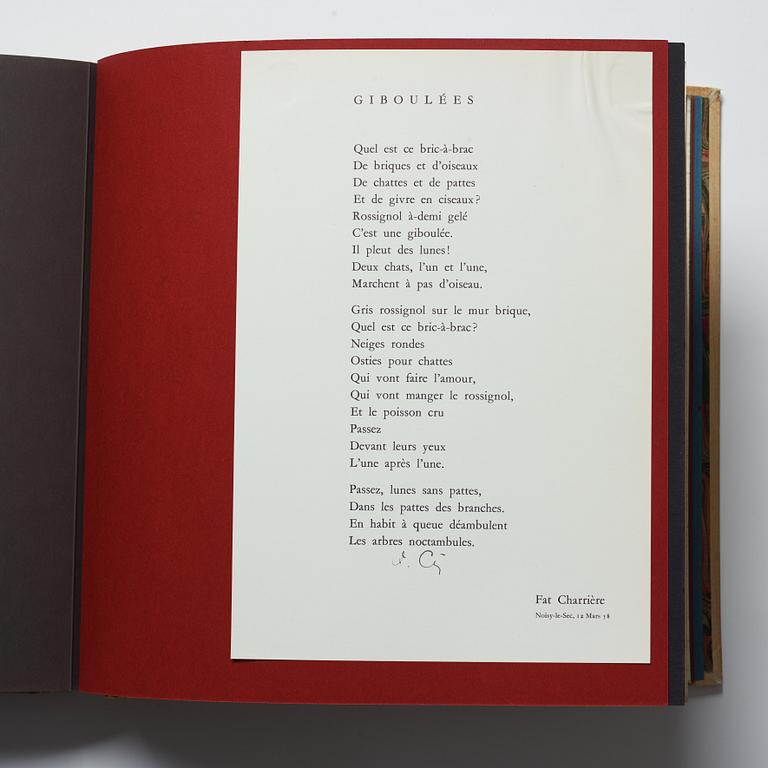 GIBOULÉES
Quel est ce bric-à-brac
De briques et d'oiseaux
De chattes et de pattes
Et de givre en ciseaux?
Rossignol à-demi gelé
C'est une giboulée.
Il pleut des lunes!
Deux chats, l'un et l'une,
Marchent à pas d'oiseau.
Gris rossignol sur le mur brique,
Quel est ce bric-à-brac?
Neiges rondes
Osties pour chattes
Qui vont faire l'amour,
Qui vont manger le rossignol,
Et le poisson cru
Passez
Devant leurs yeux
L'une après l'une.
Passez, lunes sans pattes,
Dans les pattes des branches.
En habit à queue déambulent
Les arbres noctambules.
Fat Charrière
Noisy-le-Sec, 12 Mars 58